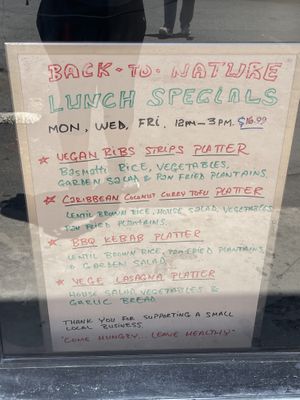 BACK-TO-NATURE
LUNCH SPECIALS
MON, WED, FRI, 12PM-3PM. $16.00
★ VEGAN RIBS STRIPS PLATTER
BASMATTI RICE, VEGETABLES,
GARDEN SALAD & PAN FRIED PLANTAINS.
★ CARIBBEAN COCONUT CURRY TOFU PLATTER
LENTIL BROWN RICE, HOUSE SALAD, VEGETABLES
PAN FRIED PLANTAINS.
★ BBQ KEBAB PLATTER
LENTIL BROWN RICE, PAN-FRIED PLANTAINS
& GARDEN SALAD
★ VEGE LASAGNA PLATTER
HOUSE SALAD VEGETABLES &
GARLIC BREAD
THANK YOU FOR SUPPORTING A SMALL
LOCAL BUSINESS.
"COME HUNGRY... LEAVE HEALTHY"